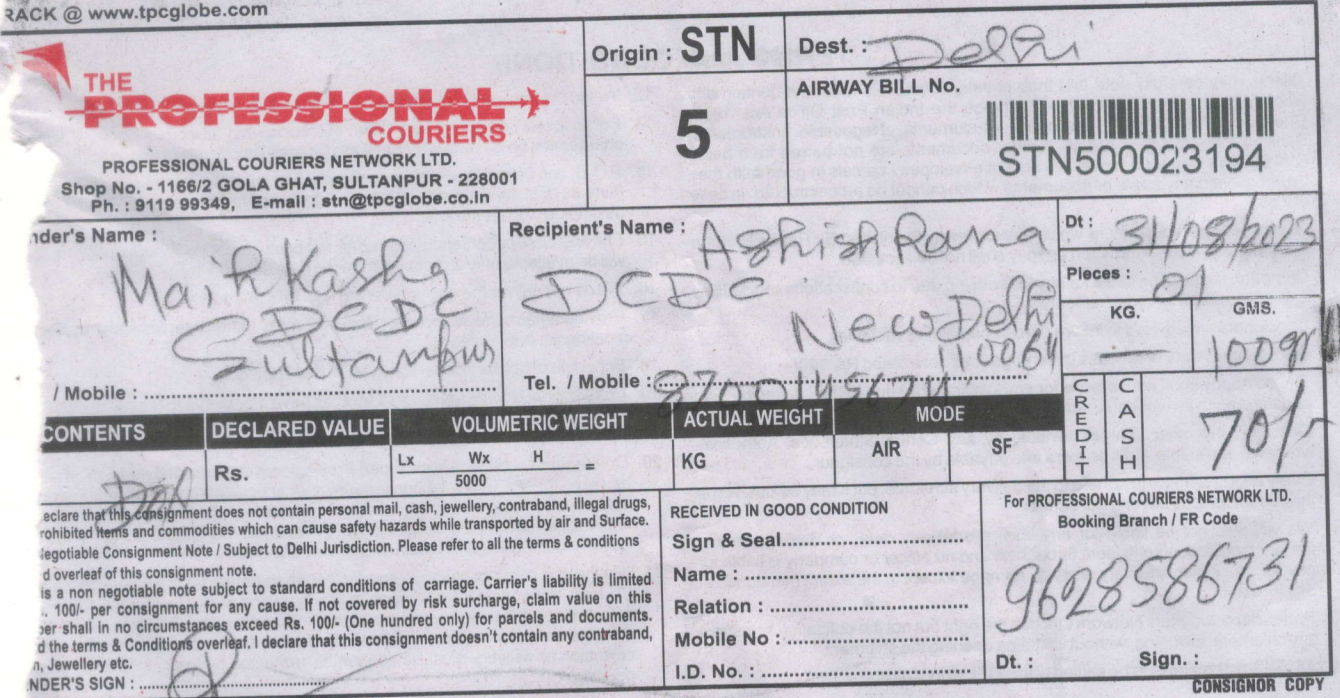 RACK @ www.tpcglobe.com
THE
PROFESSIONAL
COURIERS
PROFESSIONAL COURIERS NETWORK LTD.
Shop No. - 1166/2 GOLA GHAT, SULTANPUR - 228001
Ph. : 9119 99349, E-mail : stn@tpcglobe.co.in
Origin : STN
5
Dest. : Delhi
AIRWAY BILL No.
STN500023194
nder's Name :
DCDC
Sultanpur
/ Mobile :
Recipient's Name : Ashish Rana
DCDC
New Delhi
110064
Tel. / Mobile : 8700145674
Dt : 31/08/2023
Pieces : 01
KG. GMS.
— 100gm
CREDIT CASH 70/-
CONTENTS DECLARED VALUE VOLUMETRIC WEIGHT ACTUAL WEIGHT MODE
Dox Rs. Lx Wx H = KG AIR SF
5000
eclare that this consignment does not contain personal mail, cash, jewellery, contraband, illegal drugs,
rohibited items and commodities which can cause safety hazards while transported by air and Surface.
Negotiable Consignment Note / Subject to Delhi Jurisdiction. Please refer to all the terms & conditions
d overleaf of this consignment note.
is a non negotiable note subject to standard conditions of carriage. Carrier's liability is limited
. 100/- per consignment for any cause. If not covered by risk surcharge, claim value on this
per shall in no circumstances exceed Rs. 100/- (One hundred only) for parcels and documents.
d the terms & Conditions overleaf. I declare that this consignment doesn't contain any contraband,
n, Jewellery etc.
NDER'S SIGN :
RECEIVED IN GOOD CONDITION
Sign & Seal
Name :
Relation :
Mobile No :
I.D. No. :
For PROFESSIONAL COURIERS NETWORK LTD.
Booking Branch / FR Code
9628586731
Dt. : Sign. :
CONSIGNOR COPY